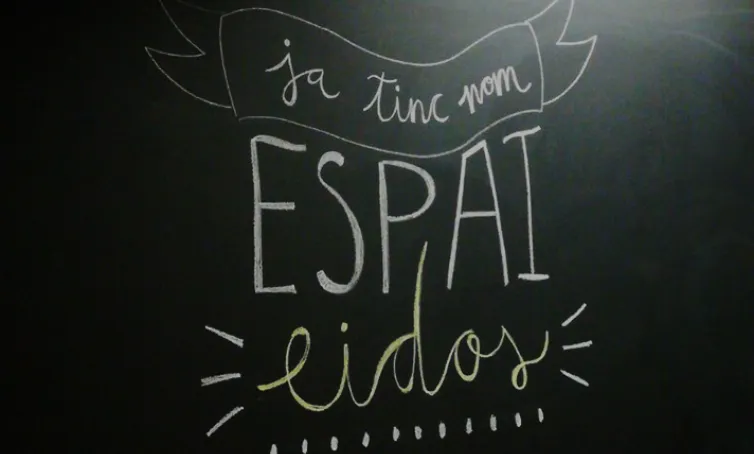 ja tinc nom
ESPAI
eidos